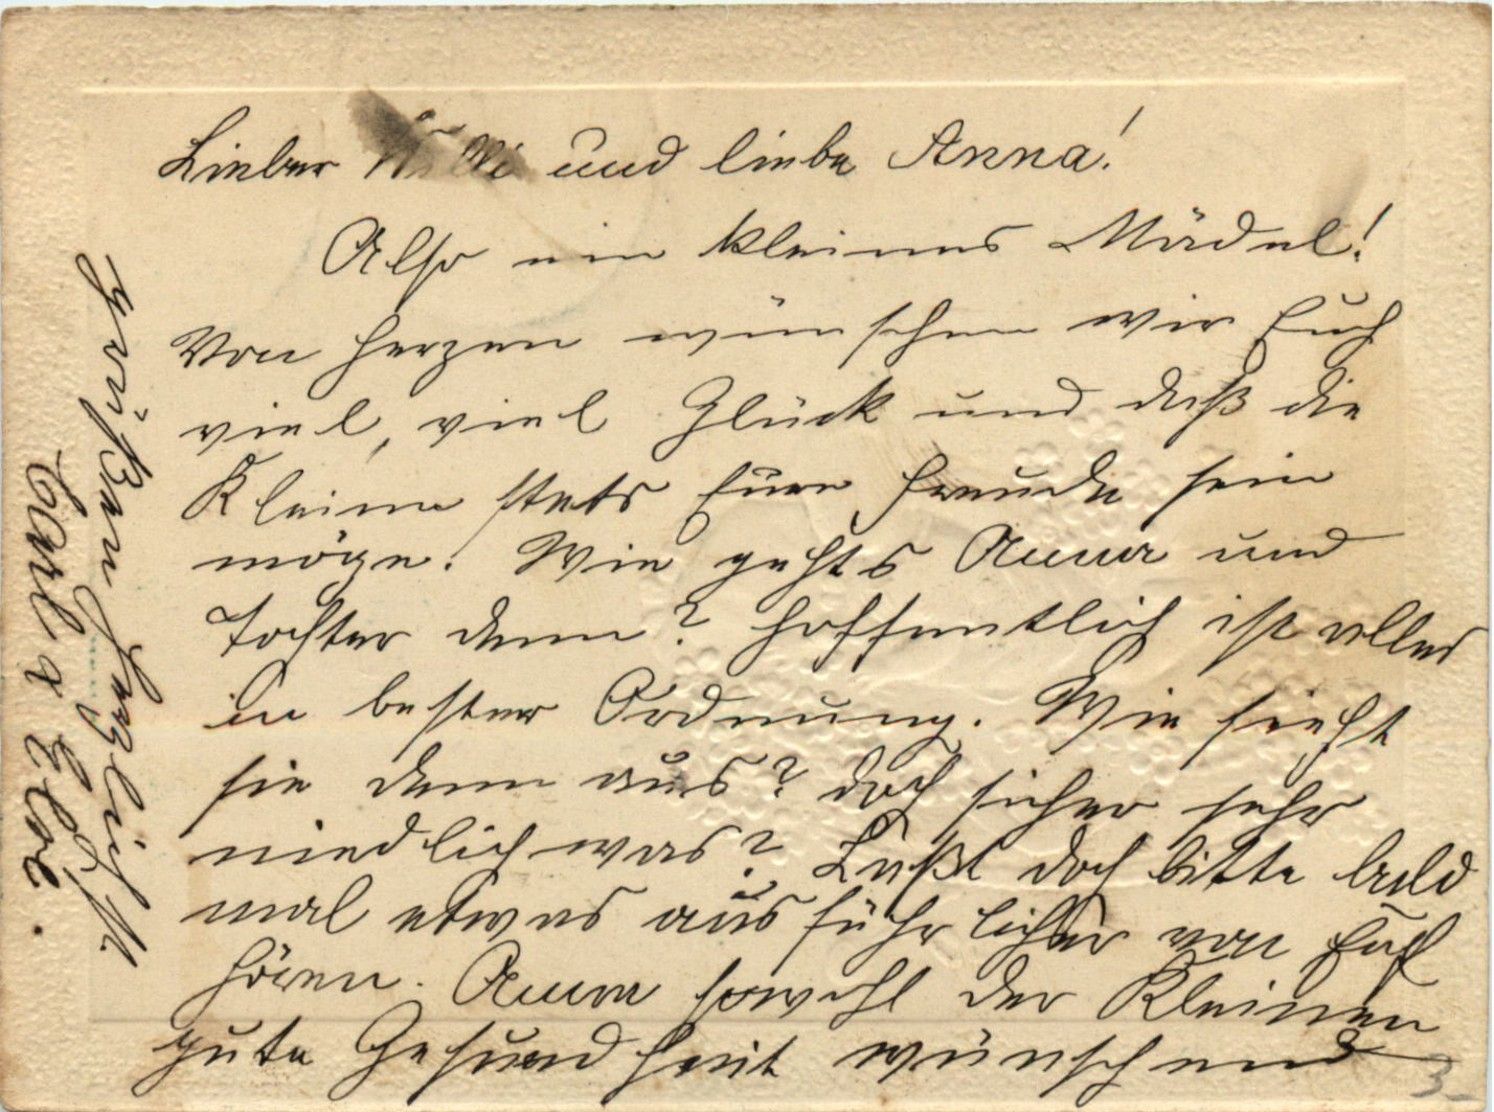 Lieber Willi und liebe Anna!
Also ein kleines Mädel!
Von Herzen wünschen wir Euch
viel, viel Glück und daß die
Kleine stets Eure Freude sein
möge. Wie gehts Anna und
Tochter denn? Hoffentlich ist alles
in bester Ordnung. Wie sieht
sie denn aus? Doch sicher sehr
niedlich was? Laßt doch bitte bald
mal etwas ausführlicher von Euch
hören. Anna sowohl der Kleinen
gute Gesundheit wünschend
grüßen herzlichst
3-